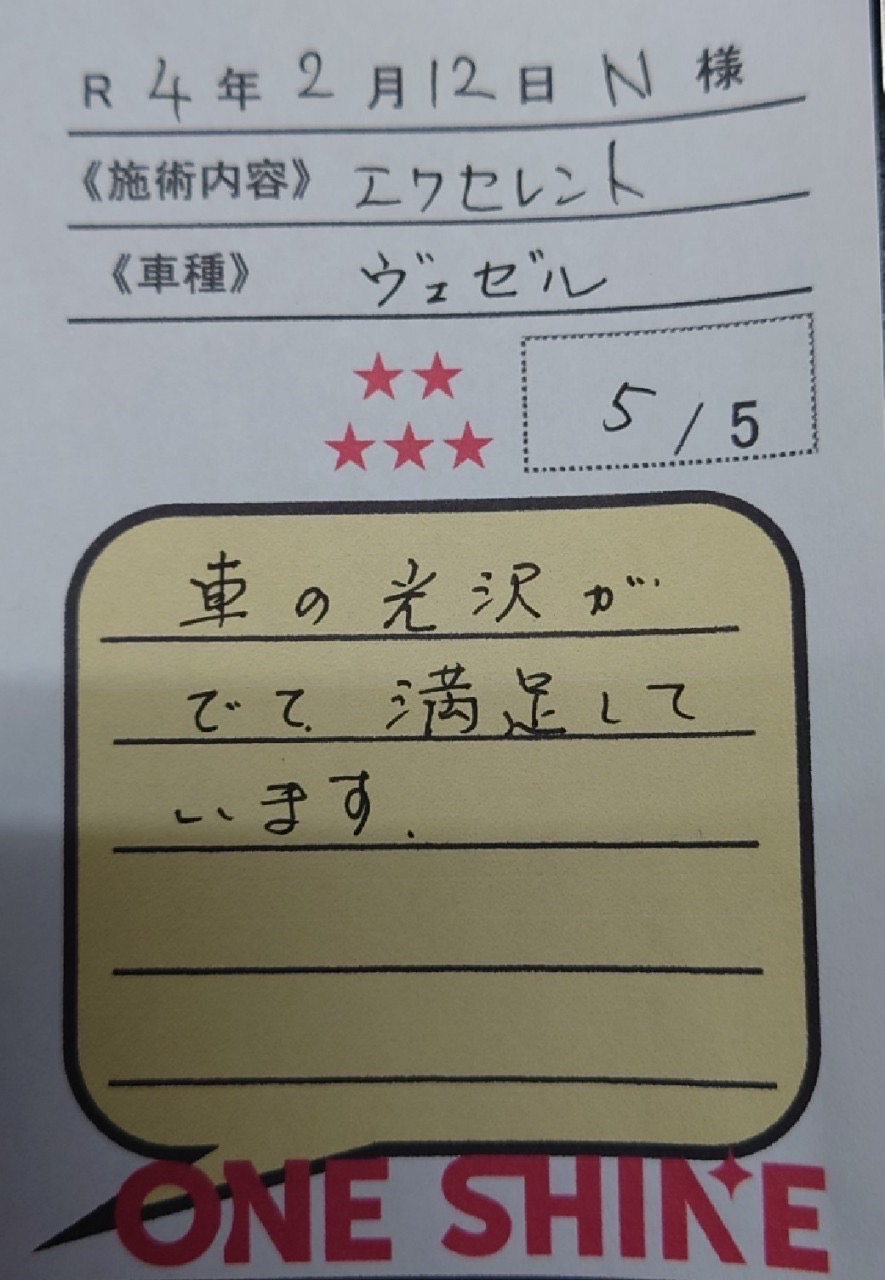 R 4年 2月12日 N 様
《施術内容》エクセレント
《車種》 ヴェゼル
★★
★★★
5/5
車の光沢が
でて満足して
います.
ONE SHINE